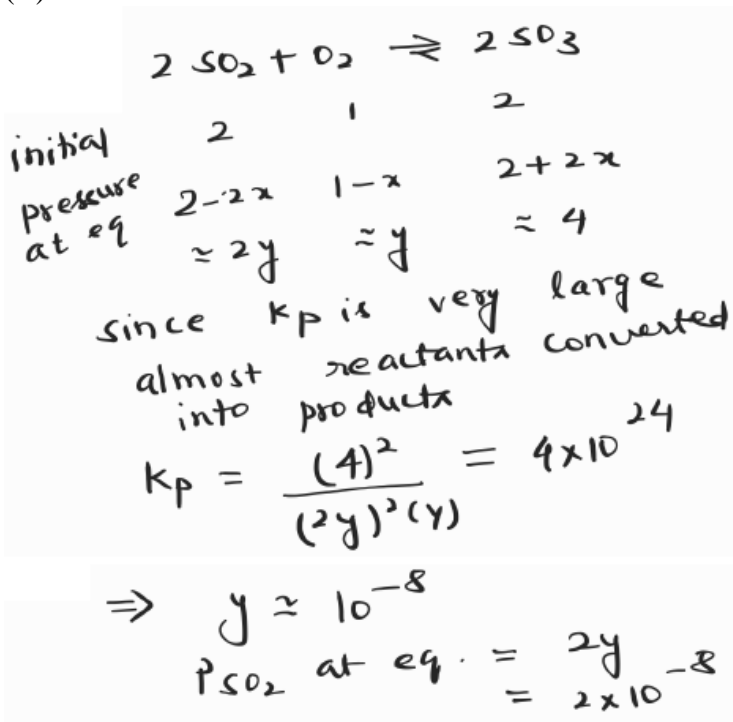 2 SO₂ + O₂ ⇌ 2 SO₃
initial 2 1 2
pressure at eq 2-2x 1-x 2+2x
≈ 2y ≈ y ≈ 4
since Kp is very large
almost reactants converted
into products
Kp = (4)² / (2y)²(y) = 4×10²⁴
⇒ y ≈ 10⁻⁸
PSO₂ at eq. = 2y
= 2×10⁻⁸